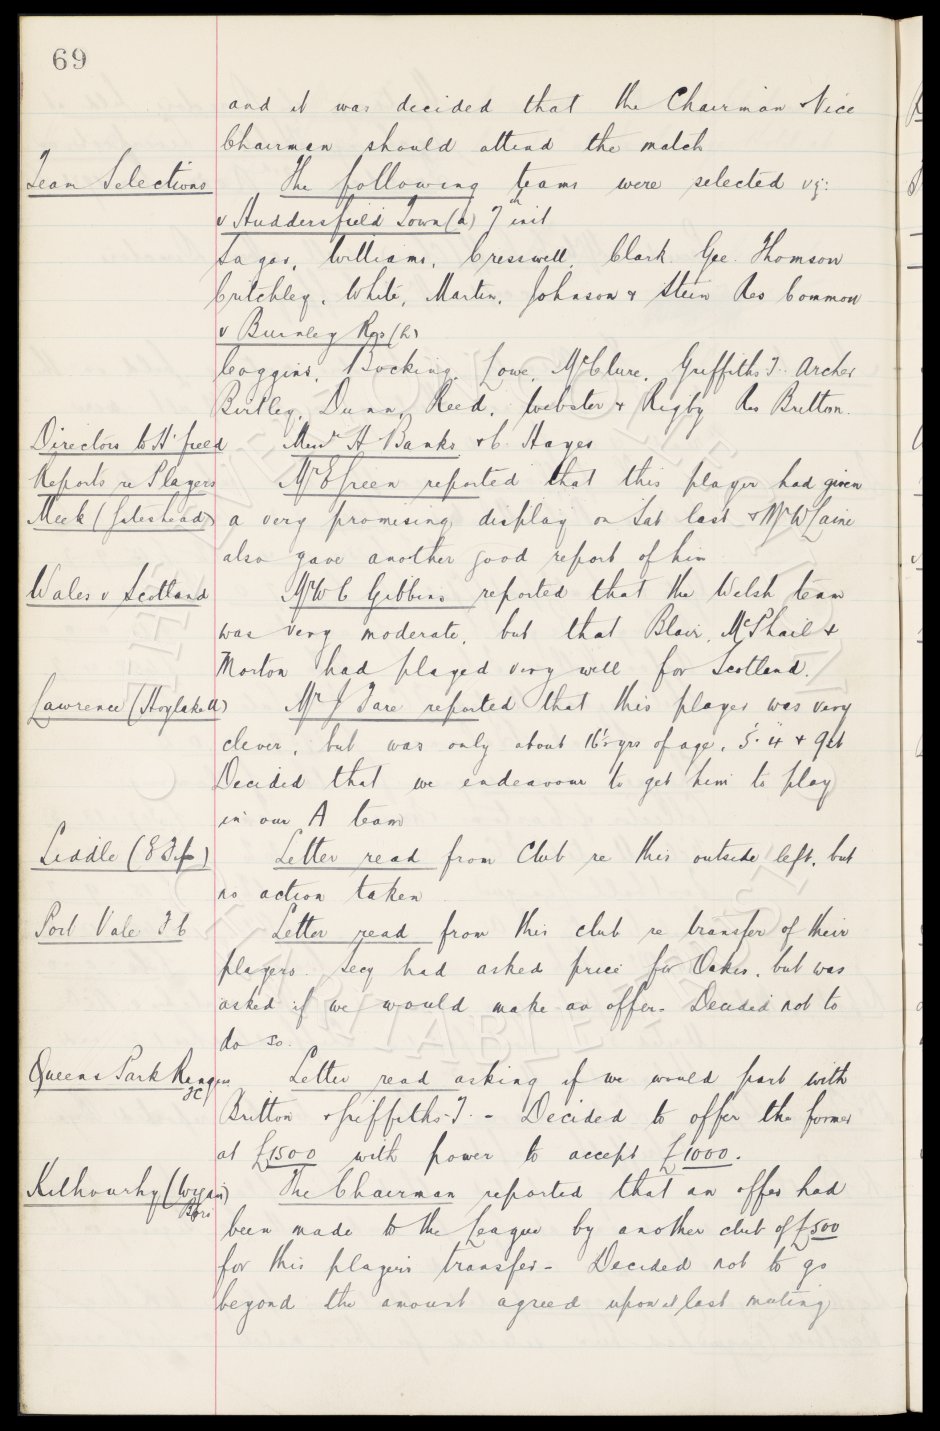 69
and it was decided that the Chairman & Vice
Chairman should attend the match
Team Selections The following teams were selected viz:
v Huddersfield Town (a) 7th inst
Sagar, Williams, Cresswell, Clark Gee. Thomson
Critchley, White, Martin, Johnson & Stein Res Common
v Burnley Res (h)
Coggins, Bocking, Lowe, McClure, Griffiths T. Archer
Birtley, Dunn, Reed, Webster & Rigby Res Britton.
Directors to H'field Messrs H Banks & C. Hayes
Reports re Players Mr E Green reported that this player had given
Meek (Gateshead) a very promising display on Sat last & Mr W Laine
also gave another good report of him
Wales v Scotland Mr W C Gibbins reported that the Welsh team
was very moderate, but that Blair, McPhail &
Morton had played very well for Scotland.
Lawrence (Hoylake A) Mr J Tare reported that this player was very
clever, but was only about 16½ yrs of age, 5'.4" & 9st
Decided that we endeavour to get him to play
in our A team
Liddle (E Fife) Letter read from Club re this outside left, but
no action taken
Port Vale F C Letter read from this club re transfer of their
players. Secy had asked price for Oakes, but was
asked if we would make an offer - Decided not to
do so.
Queens Park Rangers FC Letter read asking if we would part with
Britton & Griffiths T. - Decided to offer the former
at £1500 with power to accept £1000.
Kilhourhy (Wigan Boro) The Chairman reported that an offer had
been made to the League by another club of £500
for this player's transfer - Decided not to go
beyond the amount agreed upon at last meeting